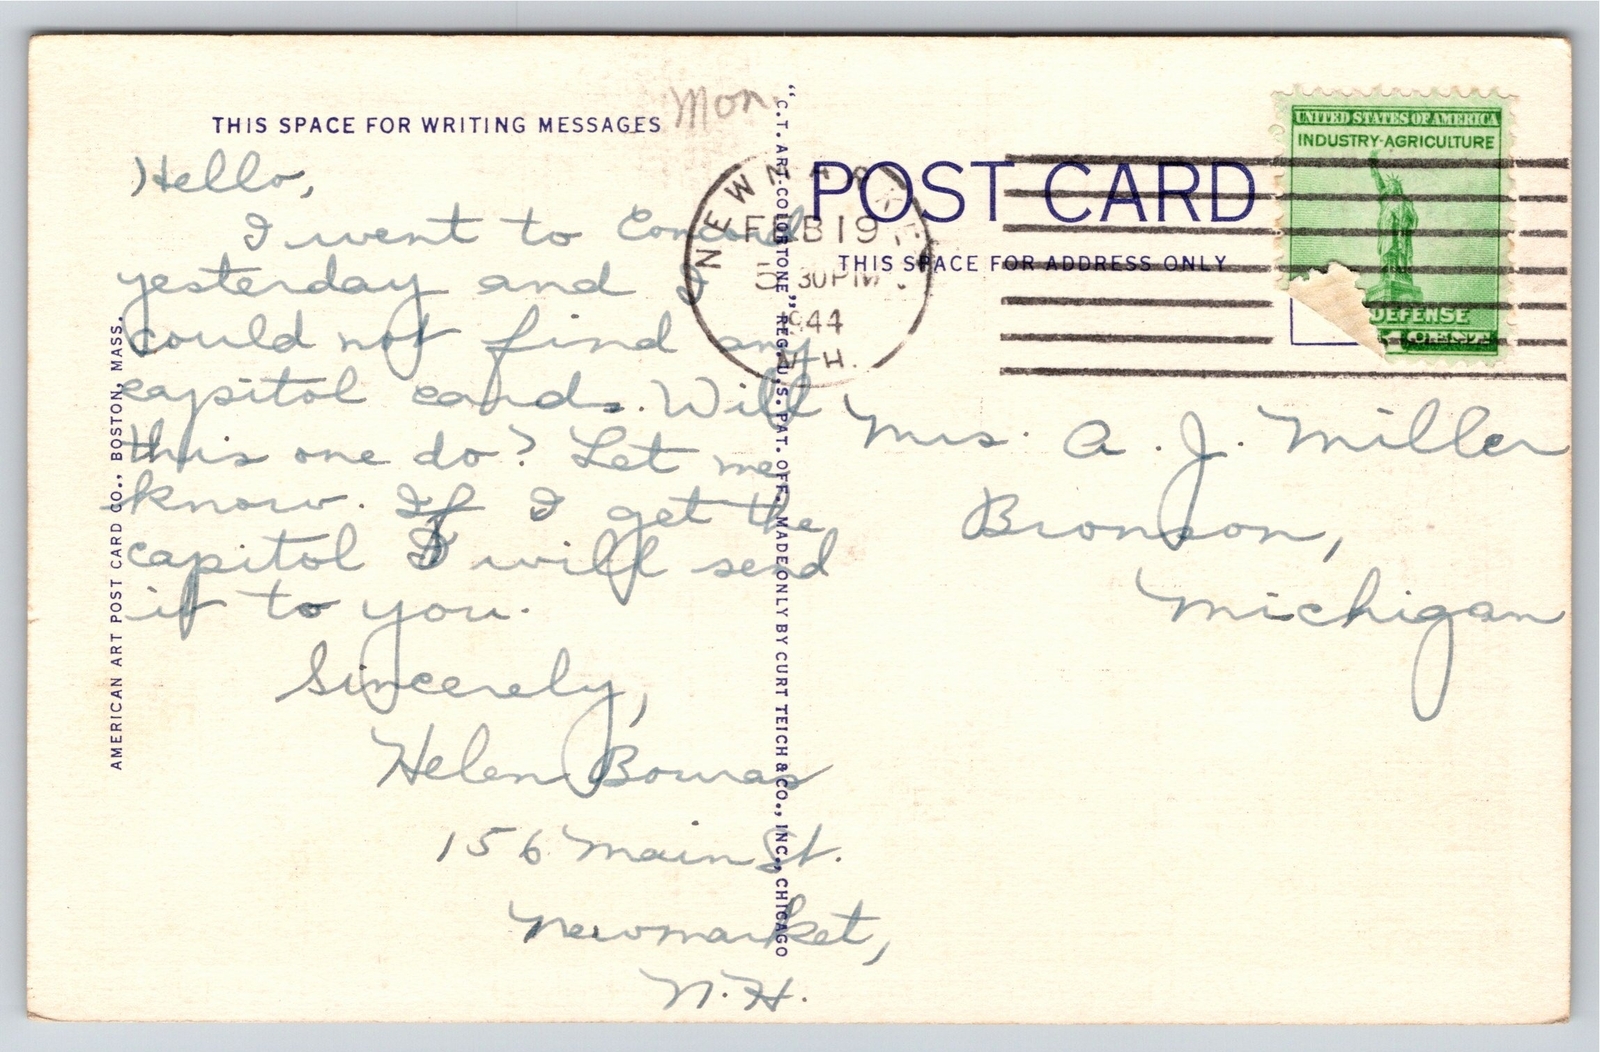 THIS SPACE FOR WRITING MESSAGES
Mon.
Hello,
I went to Concord
yesterday and I
could not find any
capitol cards. Will
this one do? Let me
know. If I get the
capitol I will send
it to you.
Sincerely,
Helen Bowras
156 Main St.
Newmarket,
N.H.
AMERICAN ART POST CARD CO., BOSTON, MASS.
"C.T. ART-COLORTONE" REG. U.S. PAT. OFF. MADE ONLY BY CURT TEICH & CO., INC., CHICAGO
NEWMARKET
FEB 19
5 30 PM
1944
N.H.
POST CARD
THIS SPACE FOR ADDRESS ONLY
UNITED STATES OF AMERICA
INDUSTRY-AGRICULTURE
DEFENSE
Mrs. A. J. Miller
Bronson,
Michigan